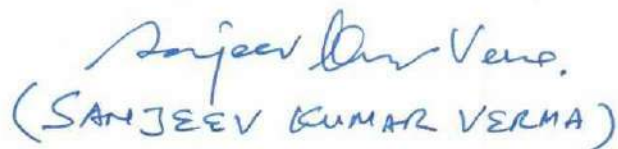 Sanjeev Kumar Verma.
(SANJEEV KUMAR VERMA)